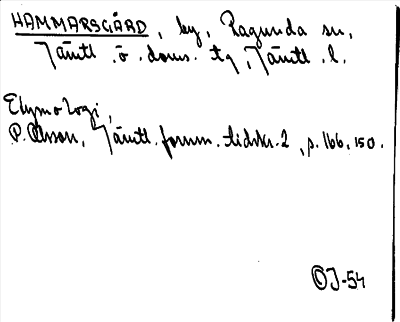 HAMMARSGÅRD, by, Ragunda sn,
Jämtl. ö. doms. tg, Jämtl. l.
Etymologi,
P. Olsson, Jämtl. fornm. tidskr. 2, p. 166, 150.
OJ-54